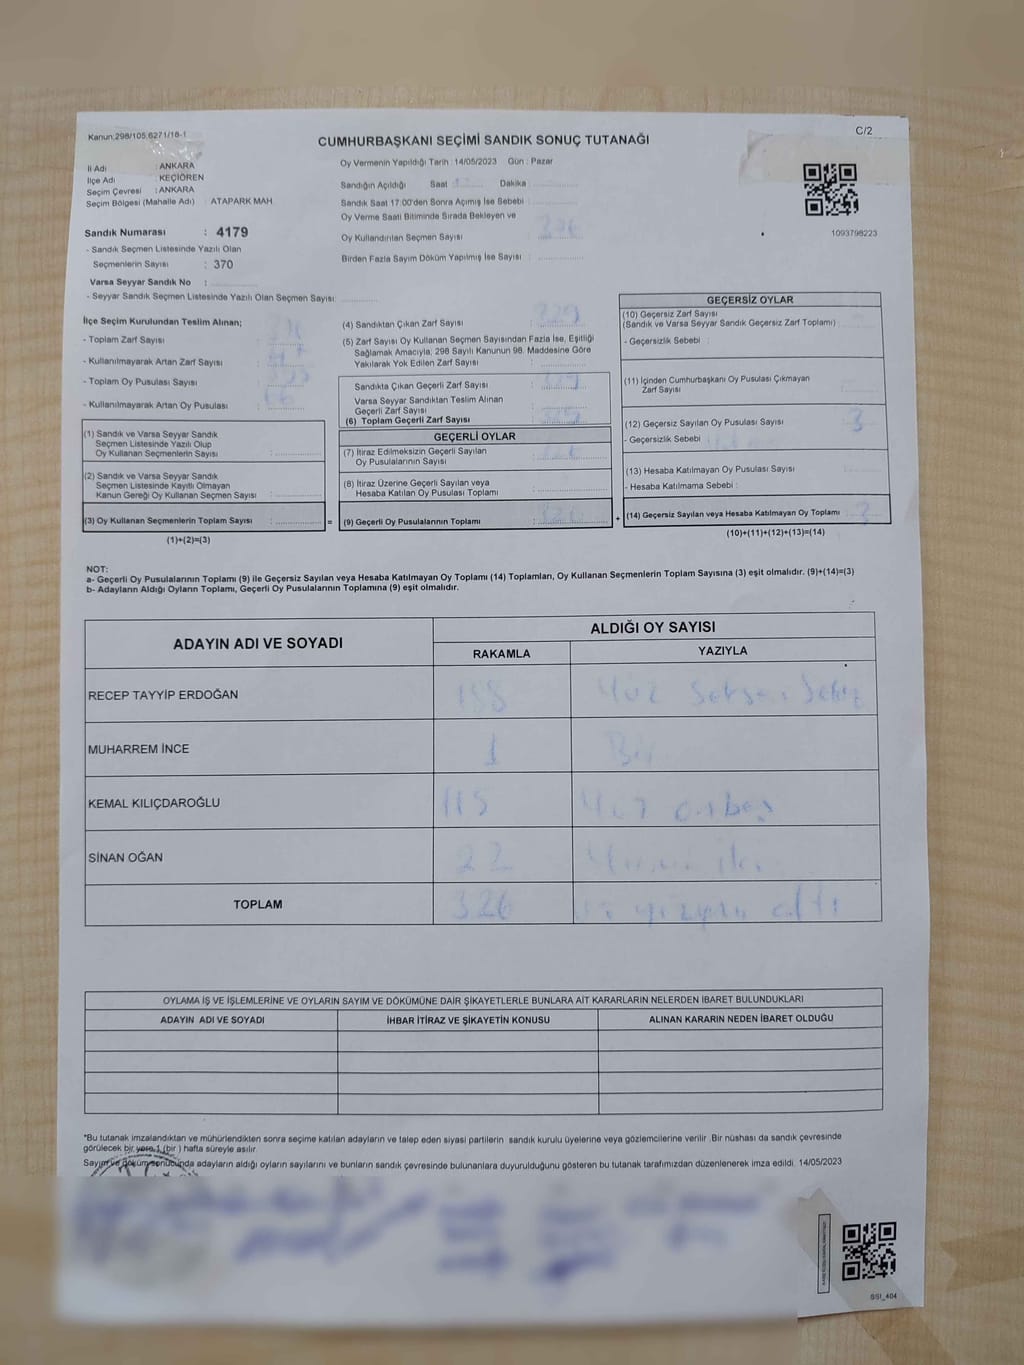 Kanun:298/105,6271/18-1
C/2
CUMHURBAŞKANI SEÇİMİ SANDIK SONUÇ TUTANAĞI
İl Adı : ANKARA
İlçe Adı : KEÇİÖREN
Seçim Çevresi : ANKARA
Seçim Bölgesi (Mahalle Adı) : ATAPARK MAH.
Oy Vermenin Yapıldığı Tarih : 14/05/2023 Gün : Pazar
Sandığın Açıldığı Saat Dakika
Sandık Saat 17:00'den Sonra Açmış İse Sebebi
Oy Verme Saati Bitiminde Sırada Bekleyen ve
Oy Kullandırılan Seçmen Sayısı :
Birden Fazla Sayım Döküm Yapılmış İse Sayısı :
1093798223
Sandık Numarası : 4179
- Sandık Seçmen Listesinde Yazılı Olan
Seçmenlerin Sayısı : 370
Varsa Seyyar Sandık No :
- Seyyar Sandık Seçmen Listesinde Yazılı Olan Seçmen Sayısı:
İlçe Seçim Kurulundan Teslim Alınan;
- Toplam Zarf Sayısı :
- Kullanılmayarak Artan Zarf Sayısı :
- Toplam Oy Pusulası Sayısı :
- Kullanılmayarak Artan Oy Pusulası : 66
(1) Sandık ve Varsa Seyyar Sandık
Seçmen Listesinde Yazılı Olup
Oy Kullanan Seçmenlerin Sayısı :
(2) Sandık ve Varsa Seyyar Sandık
Seçmen Listesinde Kayıtlı Olmayan
Kanun Gereği Oy Kullanan Seçmen Sayısı :
(3) Oy Kullanan Seçmenlerin Toplam Sayısı : =
(1)+(2)=(3)
(4) Sandıktan Çıkan Zarf Sayısı : 329
(5) Zarf Sayısı Oy Kullanan Seçmen Sayısından Fazla İse, Eşitliği
Sağlamak Amacıyla; 298 Sayılı Kanunun 98. Maddesine Göre
Yakılarak Yok Edilen Zarf Sayısı :
Sandıkta Çıkan Geçerli Zarf Sayısı : 329
Varsa Seyyar Sandıktan Teslim Alınan
Geçerli Zarf Sayısı :
(6) Toplam Geçerli Zarf Sayısı : 329
GEÇERLİ OYLAR
(7) İtiraz Edilmeksizin Geçerli Sayılan
Oy Pusulalarının Sayısı : 326
(8) İtiraz Üzerine Geçerli Sayılan veya
Hesaba Katılan Oy Pusulası Toplamı :
(9) Geçerli Oy Pusulalarının Toplamı : 326 +
GEÇERSİZ OYLAR
(10) Geçersiz Zarf Sayısı
(Sandık ve Varsa Seyyar Sandık Geçersiz Zarf Toplamı)
- Geçersizlik Sebebi :
(11) İçinden Cumhurbaşkanı Oy Pusulası Çıkmayan
Zarf Sayısı
(12) Geçersiz Sayılan Oy Pusulası Sayısı : 3
- Geçersizlik Sebebi
(13) Hesaba Katılmayan Oy Pusulası Sayısı
- Hesaba Katılmama Sebebi :
(14) Geçersiz Sayılan veya Hesaba Katılmayan Oy Toplamı : 3
(10)+(11)+(12)+(13)=(14)
NOT:
a- Geçerli Oy Pusulalarının Toplamı (9) ile Geçersiz Sayılan veya Hesaba Katılmayan Oy Toplamı (14) Toplamları, Oy Kullanan Seçmenlerin Toplam Sayısına (3) eşit olmalıdır. (9)+(14)=(3)
b- Adayların Aldığı Oyların Toplamı, Geçerli Oy Pusulalarının Toplamına (9) eşit olmalıdır.
ADAYIN ADI VE SOYADI
ALDIĞI OY SAYISI
RAKAMLA YAZIYLA
RECEP TAYYİP ERDOĞAN 188 Yüz Seksen Sekiz
MUHARREM İNCE 1 Bir
KEMAL KILIÇDAROĞLU 115 Yüz onbeş
SİNAN OĞAN 22 Yirmi iki
TOPLAM 326 üç yüzyirmi altı
OYLAMA İŞ VE İŞLEMLERİNE VE OYLARIN SAYIM VE DÖKÜMÜNE DAİR ŞİKAYETLERLE BUNLARA AİT KARARLARIN NELERDEN İBARET BULUNDUKLARI
ADAYIN ADI VE SOYADI İHBAR İTİRAZ VE ŞİKAYETİN KONUSU ALINAN KARARIN NEDEN İBARET OLDUĞU
*Bu tutanak imzalandıktan ve mühürlendikten sonra seçime katılan adayların ve talep eden siyasi partilerin sandık kurulu üyelerine veya gözlemcilerine verilir. Bir nüshası da sandık çevresinde
görülecek bir yere 1 (bir) hafta süreyle asılır.
Sayım ve döküm sonucunda adayların aldığı oyların sayılarını ve bunların sandık çevresinde bulunanlara duyurulduğunu gösteren bu tutanak tarafımızdan düzenlenerek imza edildi. 14/05/2023
SSI_404